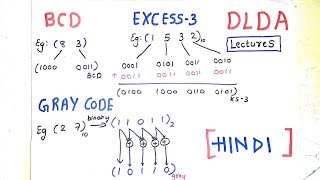 BCD
EXCESS-3
DLDA
Lectures
Eg: (8 3)
(1000 0011)
BCD
Eg: (1 5 3 2)10
0001 0101 0011 0010
+ 0011 0011 0011 0011
(0100 1000 0110 0101)
XS-3
GRAY CODE
Eg (2 7)10 binary (1 1 0 1 1)2
(1 0 1 1 0)gray
[HINDI]